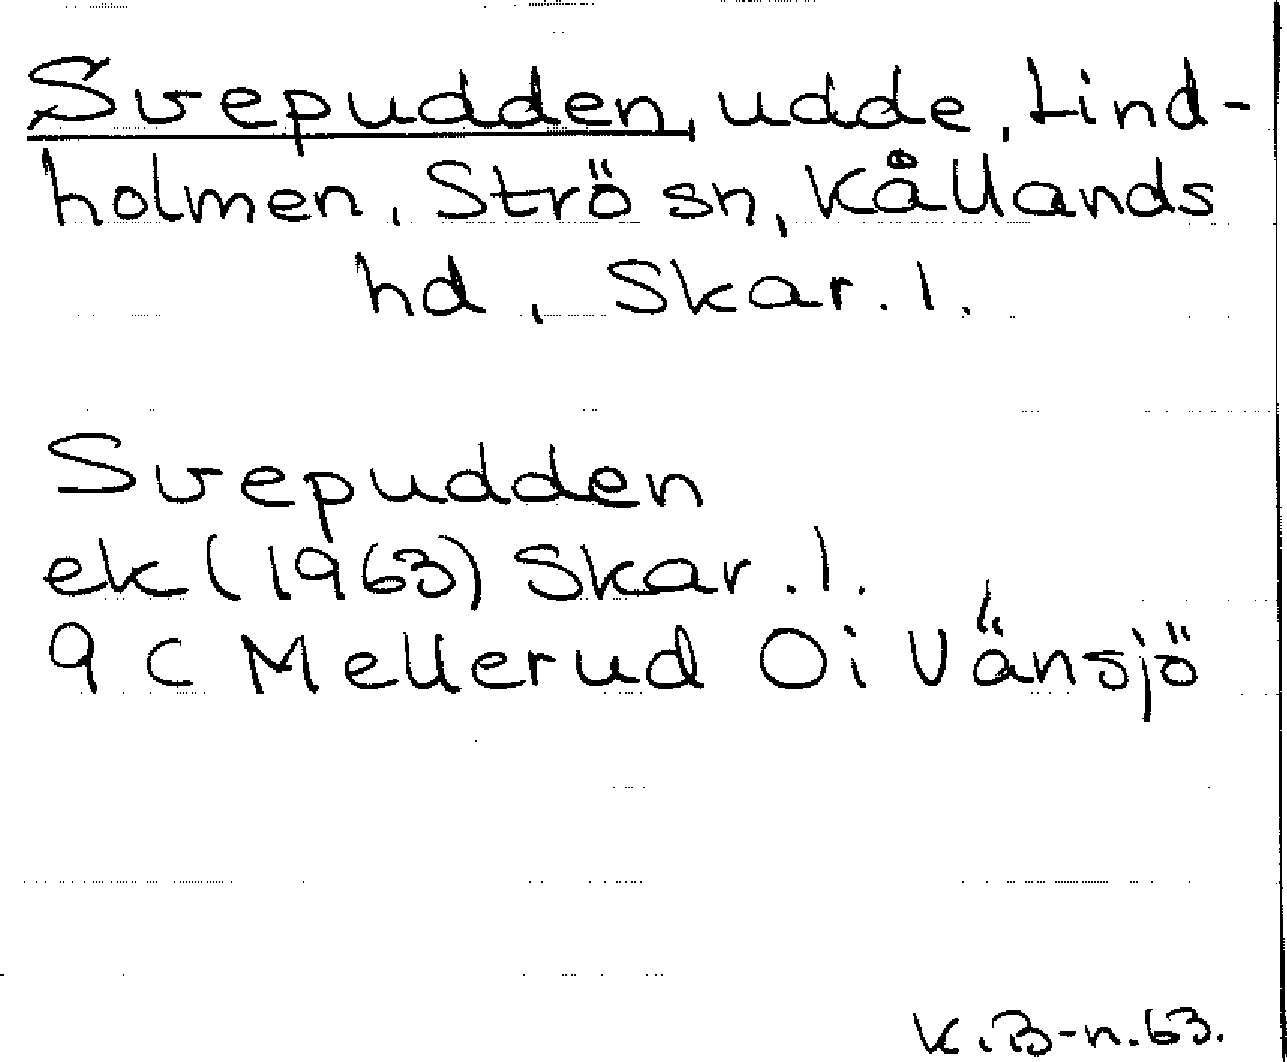 Svepudden, udde, Lind-
holmen, Strö sn, Kållands
hd, Skar. l.
Svepudden
ek (1963) Skar. l.
9 C Mellerud Oi Vänsjö
K.B-n.63.